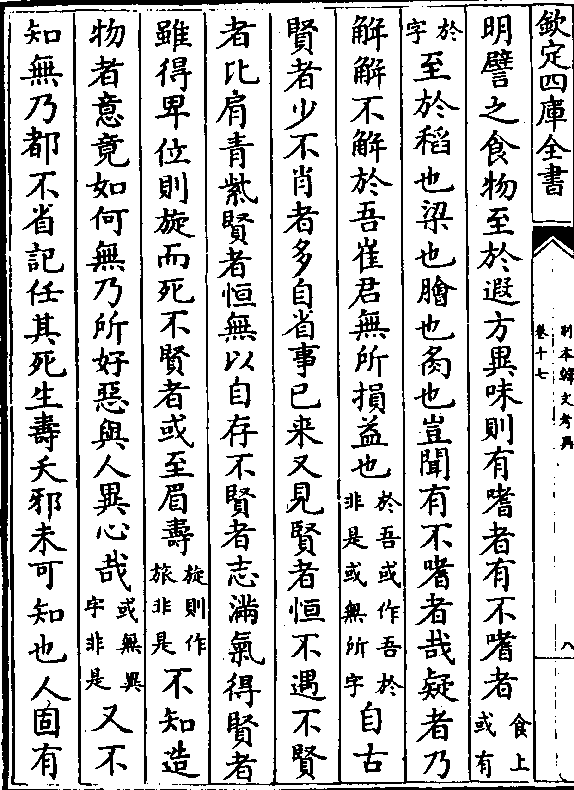 欽定四庫全書
別本韓文考異
卷十七
八
明譬之食物至於遐方異味則有嗜者有不嗜者食上或有
於字至於稻也粱也膾也炙也豈聞有不嗜者哉疑者乃
解解不解於吾崔君無所損益也於吾或作吾於非是或無所字自古
賢者少不肖者多自省事已来又見賢者恒不遇不賢
者比肩青紫賢者恒無以自存不賢者志滿氣得賢者
雖得卑位則旋而死不賢者或至眉壽旋則作旅非是不知造
物者意竟如何無乃所好惡與人異心哉或無異字非是又不
知無乃都不省記任其死生壽夭邪未可知也人固有